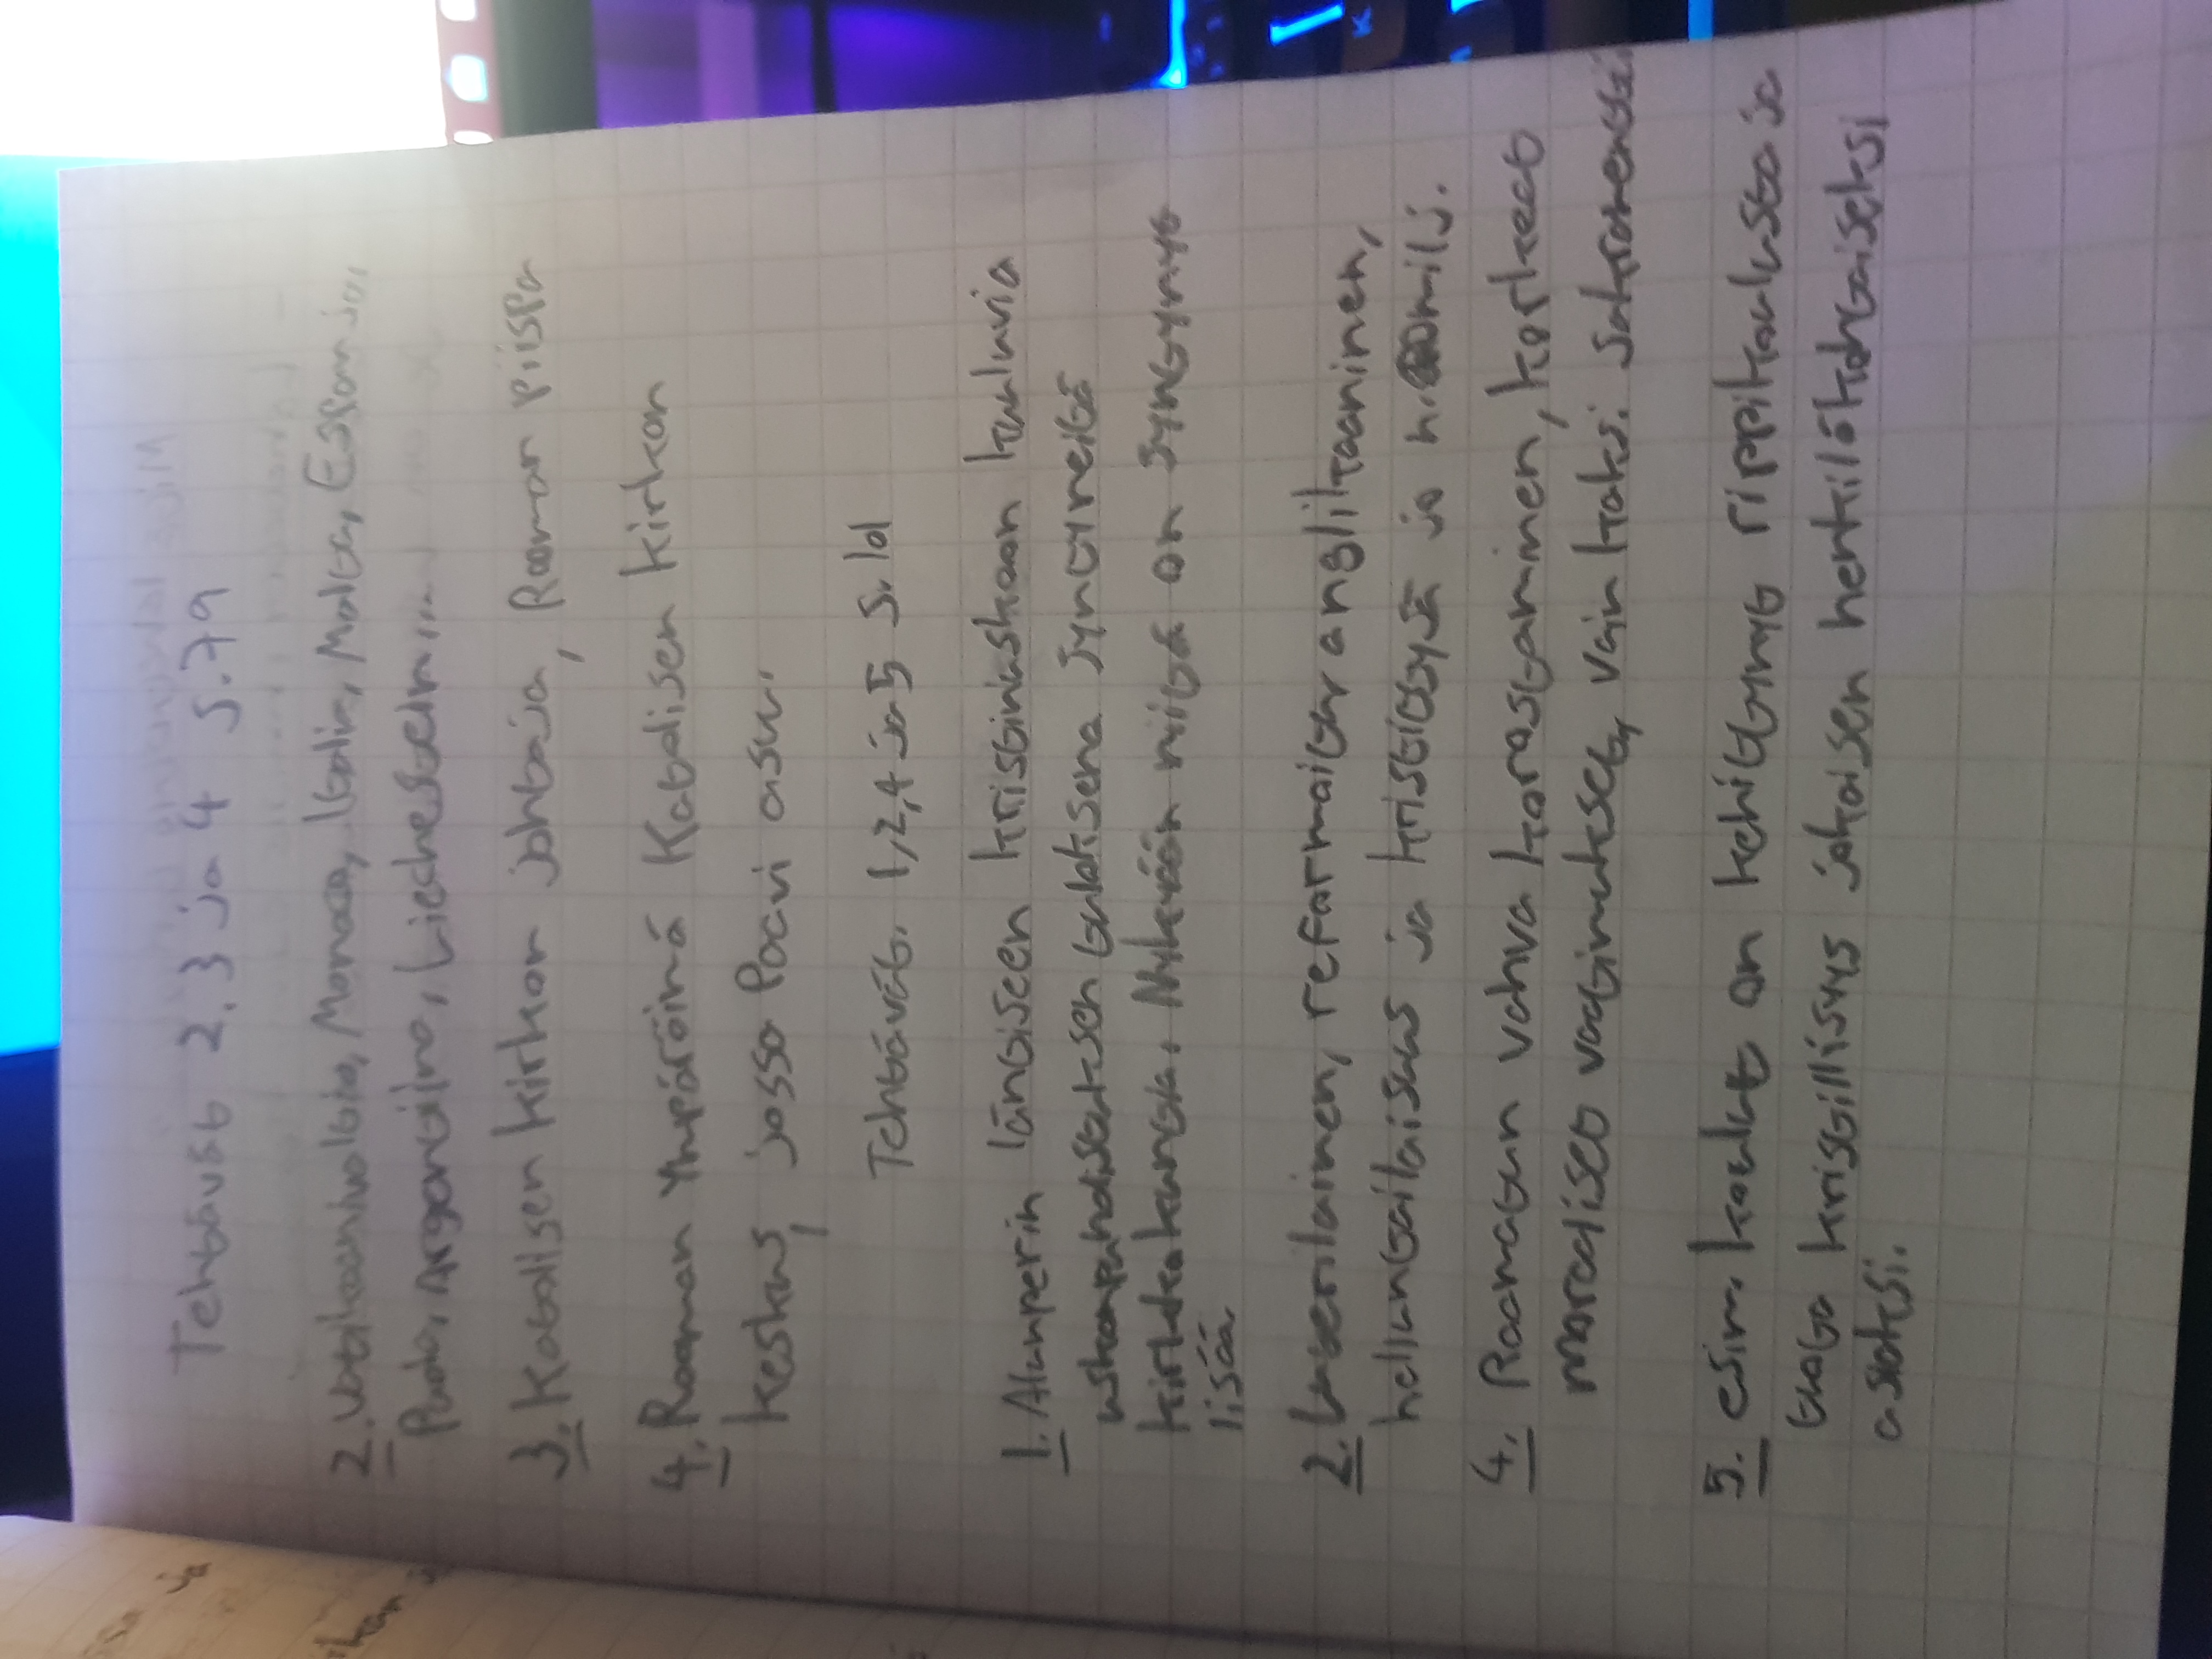 Tehtävät 2, 3 ja 4 s.79
2. Monaco, Italia, Malta, Espanja,
Puola, Argentiina, Liechestein
3. Katolisen kirkon johtaja, Rooman piispa
4. Rooman ympäröimä Katolisen kirkon
keskus, jossa Paavi asuu.
Tehtävät. 1,2,4 ja 5 s.101
1. Alunperin läntisen kristinuskoon kuuluvia
uskonpuhdistuksen tuloksena syntyneitä
kirkkokuntia. Nykyään niitä on syntynyt
lisää
2. Luterilainen, reformaitu anglikaaninen,
helluntailaisuus ja kristittysä ja
4. Raamatun vahva korostaminen, korkeat
moraaliset vaatimukset, vain kaksi sakramenttia
5. esim. koulut on kehittynyt rippikoulusta ja
tata kristillisyys jokaisen henkilökohtaiseksi
asiaksi.
ja